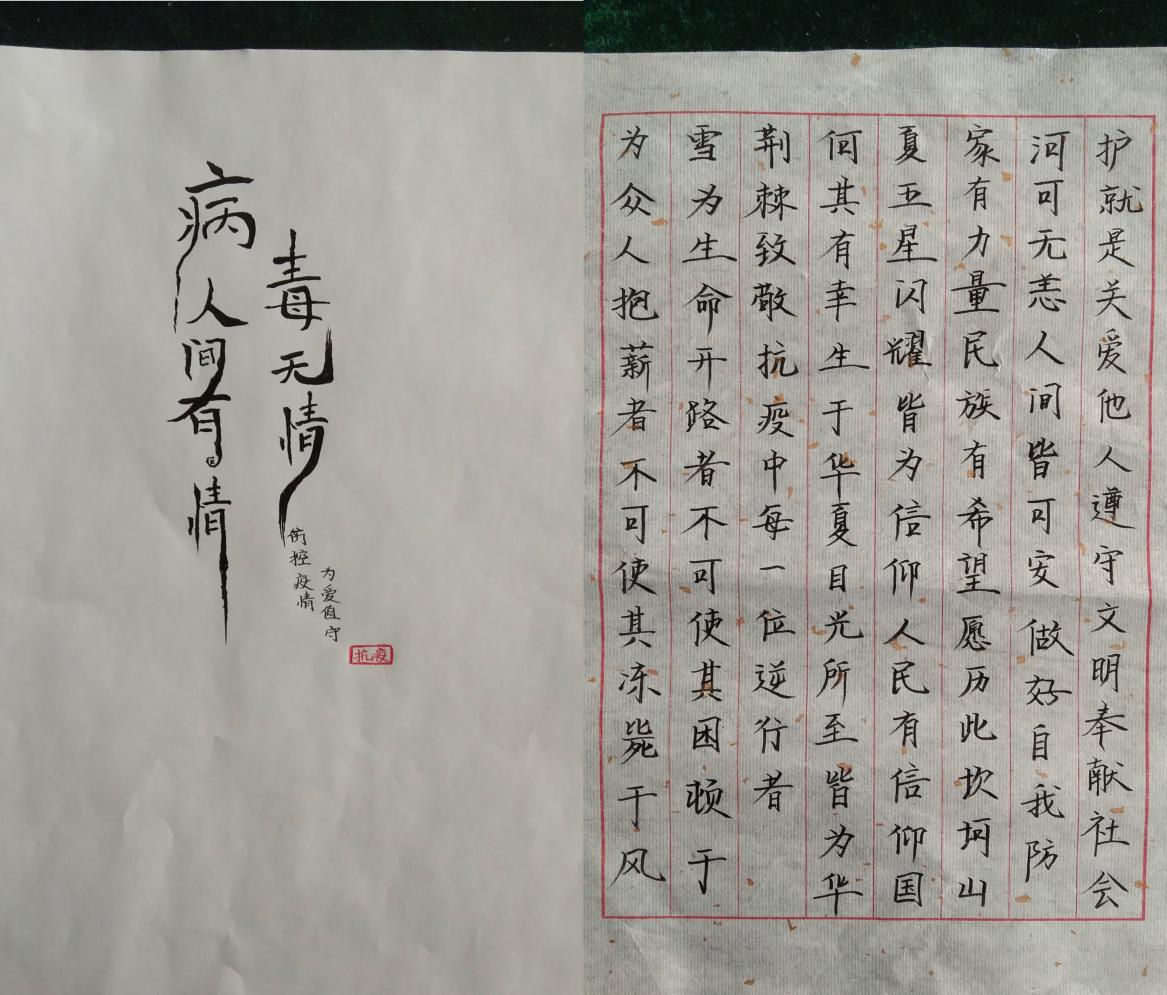 病毒无情
人间有情
防控疫情
为爱值守
抗疫
为众人抱薪者不可使其冻毙于风
雪为生命开路者不可使其困顿于
荆棘致敬抗疫中每一位逆行者
何其有幸生于华夏目光所至皆为华
夏五星闪耀皆为信仰人民有信仰国
家有力量民族有希望愿历此坎坷山
河可无恙人间皆可安做好自我防
护就是关爱他人遵守文明奉献社会